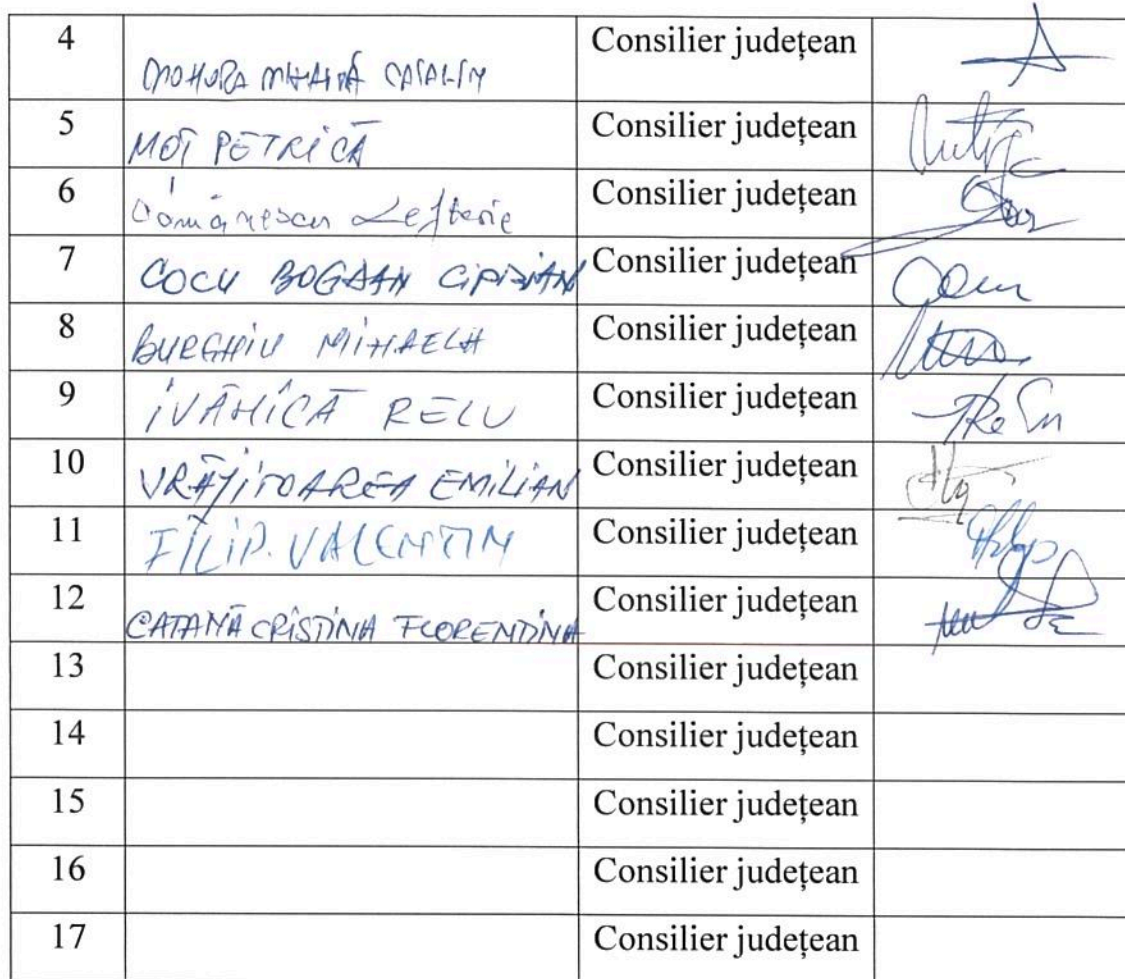 4 MIHAIȚĂ CATALIN Consilier județean
5 MOȚ PETRICĂ Consilier județean
6 Domănescu Lefterie Consilier județean
7 COCU BOGDAN CIPRIAN Consilier județean
8 BURGHIU MIHAELA Consilier județean
9 IVĂNICĂ RELU Consilier județean
10 VRĂJITOAREA EMILIAN Consilier județean
11 FILIP VALENTIN Consilier județean
12 CATANĂ CRISTINA FLORENTINA Consilier județean
13 Consilier județean
14 Consilier județean
15 Consilier județean
16 Consilier județean
17 Consilier județean